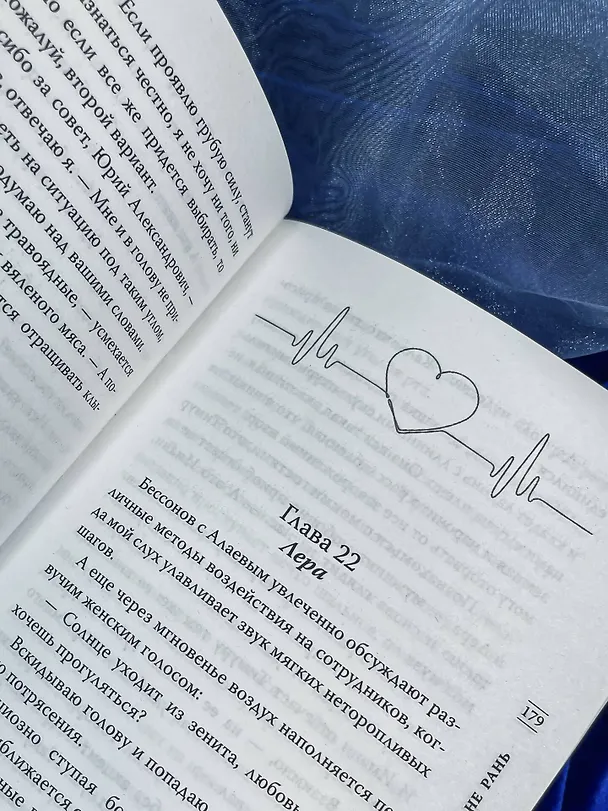 Если проявляю грубую силу, станут
знаться честно, я не хочу ни того, ни
если все же придется выбирать, то
пожалуй, второй вариант.
за совет, Юрий Александрович, —
отвечаю я. — Мне и в голову не при-
на ситуацию под таким углом,
над вашими словами.
травоядные, — усмехается
вяленого мяса. — А по-
отращивать клы-
Глава 22
Лера
Бессонов с Алаевым увлеченно обсуждают раз-
личные методы воздействия на сотрудников, ког-
да мой слух улавливает звук мягких неторопливых
шагов.
А еще через мгновенье воздух наполняется
вучим женским голосом:
— Солнце уходит из зенита,
хочешь прогуляться?
Вскидываю голову и попадаю
потрясения.
ступая
179
НЕ РАНЬ